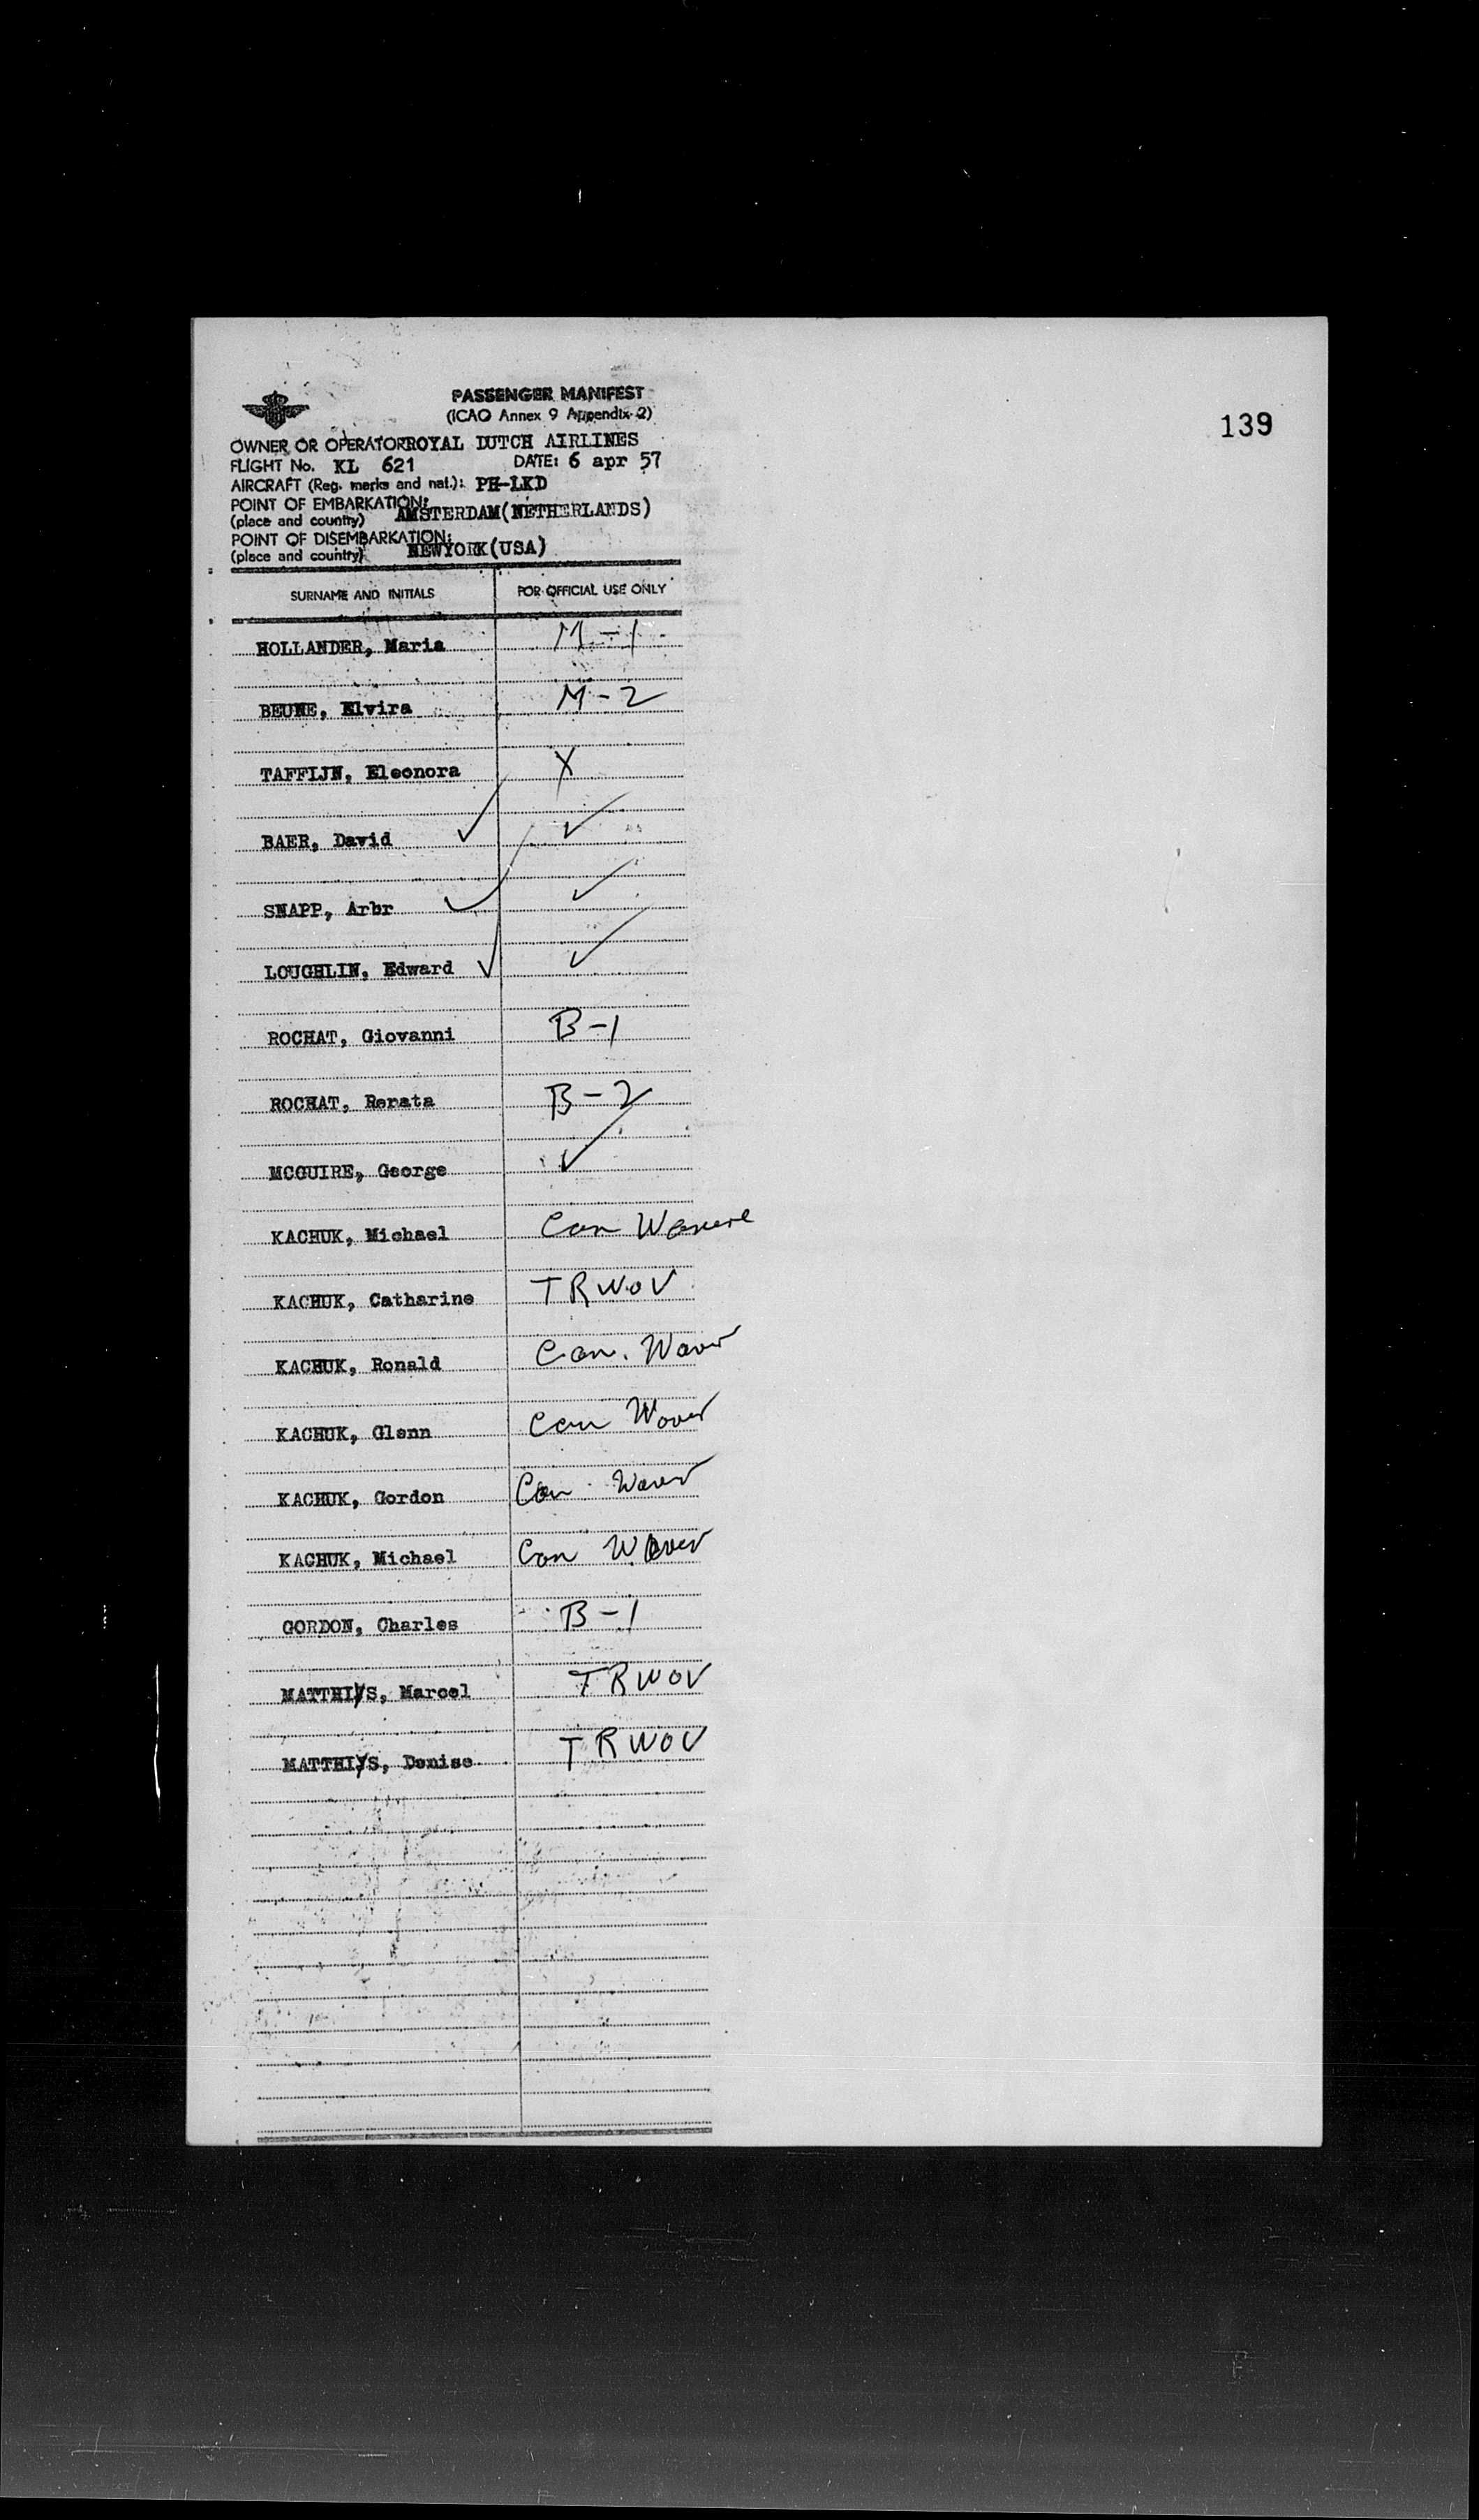 139
PASSENGER MANIFEST
(ICAO Annex 9 Appendix 2)
OWNER OR OPERATOR ROYAL DUTCH AIRLINES
FLIGHT No. KL 621 DATE: 6 apr 57
AIRCRAFT (Reg. marks and nat.): PH-LKD
POINT OF EMBARKATION:
(place and country) AMSTERDAM(NETHERLANDS)
POINT OF DISEMBARKATION:
(place and country) NEWYORK(USA)
SURNAME AND INITIALS FOR OFFICIAL USE ONLY
HOLLANDER, Maria M-1
BEUNE, Elvira M-2
TAFFIJN, Eleonora X
BAER, David ✓ ✓
SNAPP, Arbr ✓ ✓
LOUGHLIN, Edward ✓ ✓
ROCHAT, Giovanni B-1
ROCHAT, Renata B-2
MCGUIRE, George ✓
KACHUK, Michael Can
KACHUK, Catharine TRWOV
KACHUK, Ronald Can. Waver
KACHUK, Glenn Can Waver
KACHUK, Gordon Can Waver
KACHUK, Michael Can Waver
GORDON, Charles B-1
MATTHIYS, Marcel TRWOV
MATTHIYS, Denise TRWOV